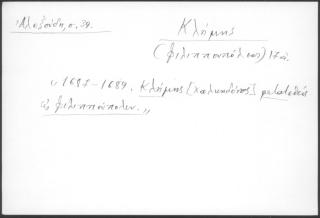 Ἀλεξούδη, σ. 39.
Κλήμης
(Φιλιππουπόλεως) 17 αἰ.
"1687-1689. Κλήμης [Χαλκηδόνος] μετατεθεὶς
εἰς Φιλιππούπολιν."